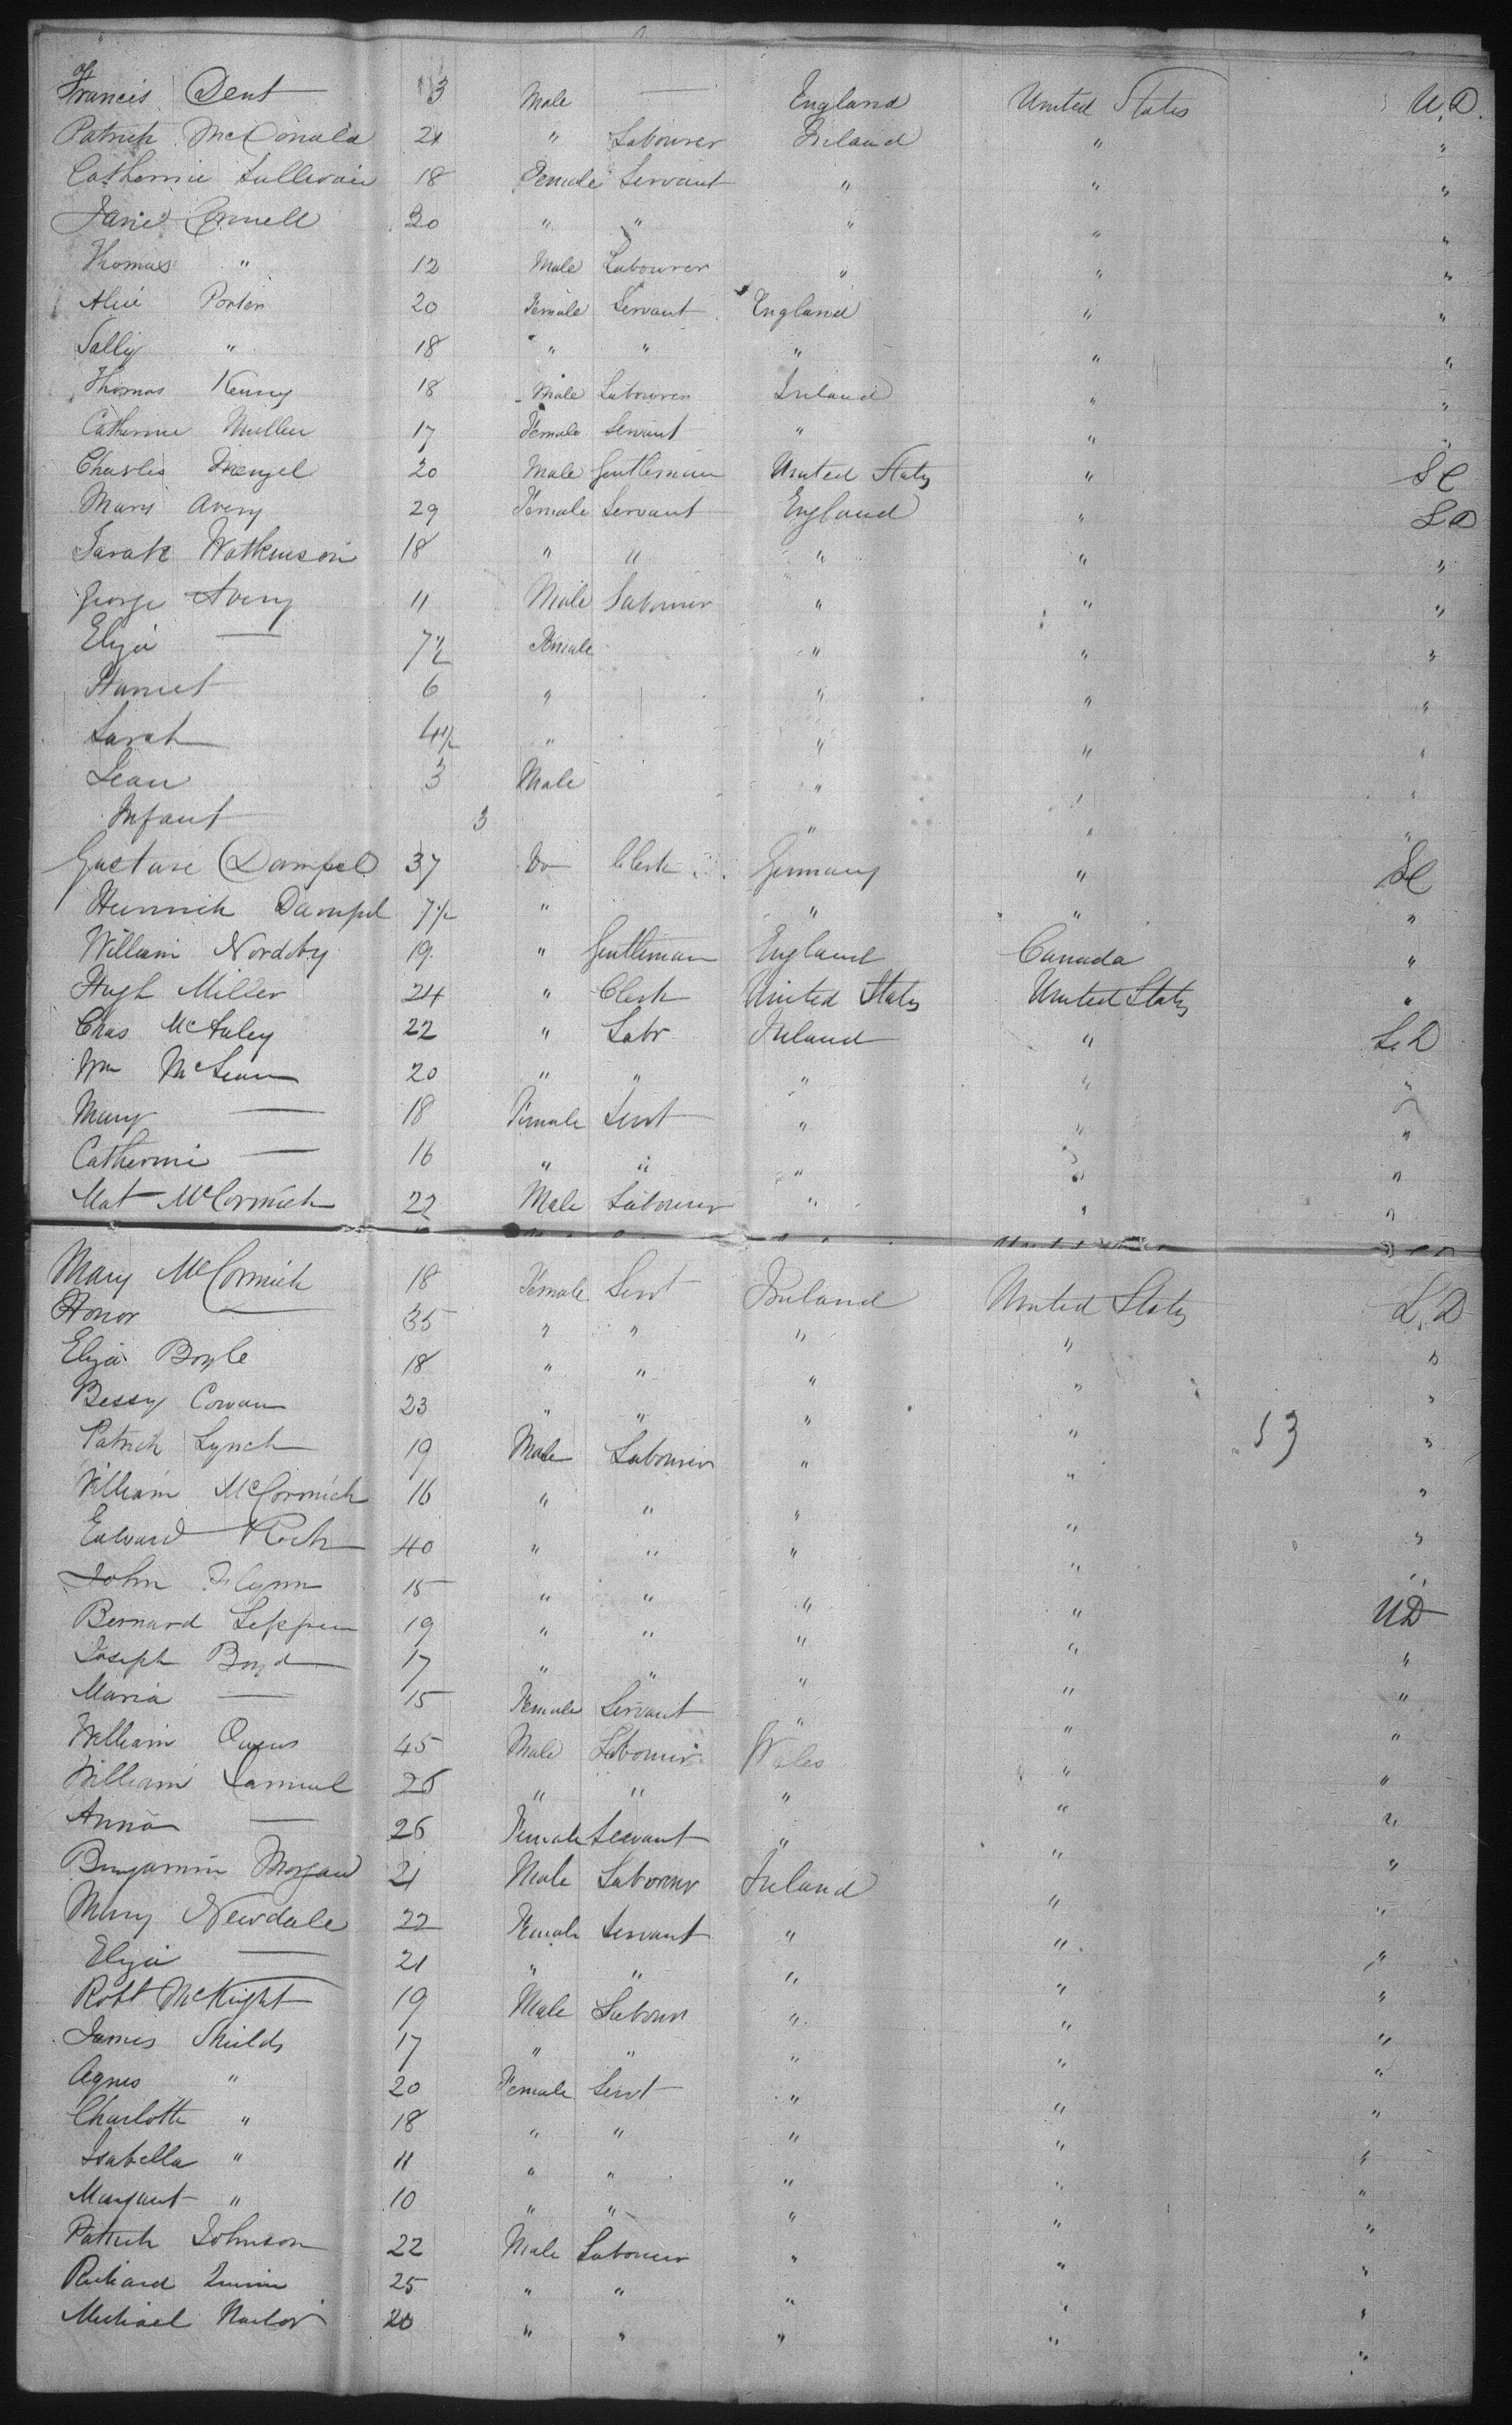 Francis Dent 3 Male — England United States U.D.
Patrick McDonald 21 " Labourer Ireland " "
Catherine Sullivan 18 Female Servant " " "
Jane Connell 20 " " " " "
Thomas " 12 Male Labourer " " "
Alice Porter 20 Female Servant England " "
Sally " 18 " " " " "
Thomas Kenny 18 Male Labourer Ireland " "
Catherine Mullen 17 Female Servant " " "
Charles 20 Male Gentleman United States " SC
Mary Avery 29 Female Servant England " LD
Sarah Watkinson 18 " " " " "
George Avery 11 Male Labourer " " "
Eliza — 7 1/2 Female " " "
Harriet 6 " " " "
Sarah 4 1/2 " " " "
Jean 3 Male " " "
Infant 3 " " "
Gustave Dampel 37 Do Clerk Germany " SC
Heinrich Dampel 7 1/2 " " " "
William Nordoby 19 " Gentleman England Canada "
Hugh Miller 24 " Clerk United States United States "
Chas McAuley 22 " Labr Ireland " L.D
Wm McLean 20 " " " " "
Mary — 18 Female Servt " " "
Catherine — 16 " " " " "
Mat McCormick 22 Male Labourer " " "
Mary McCormick 18 Female Servt Ireland United States L.D
Honor — 35 " " " " "
Eliza Boyle 18 " " " " "
Bessy Cowan 23 " " " " "
Patrick Lynch 19 Male Labourer " " 53 "
William McCormick 16 " " " " "
Edward Roch 40 " " " " "
John Flynn 15 " " " " "
Bernard 19 " " " " UD
Joseph Boyd 17 " " " " "
Maria — 15 Female Servant " " "
William Owens 45 Male Labourer Wales " "
William Samuel 26 " " " " "
Anna — 26 Female Servant " " "
Benjamin Morgan 21 Male Labourer Ireland " "
Mary Newdale 22 Female Servant " " "
Eliza — 21 " " " " "
Robt McKnight 19 Male Labour " " "
James Shields 17 " " " " "
Agnes " 20 Female Servt " " "
Charlotte " 18 " " " " "
Isabella " 11 " " " " "
Margaret " 10 " " " " "
Patrick Johnson 22 Male Labourer " " "
Richard Quinn 25 " " " " "
Michael 20 " " " " "